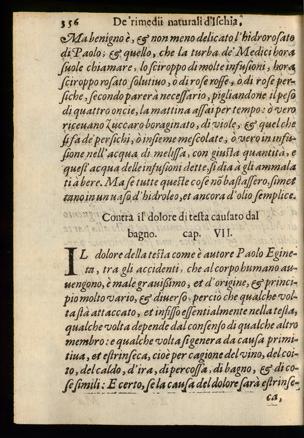 356 De' rimedii naturali d'Ischia,
Ma benigno è, & non meno delicato l'hidrorosato
di Paolo; & quello, che la turba de' Medici hora
suole chiamare, lo sciroppo di molte infusioni, hora
sciroppo rosato solutiuo, ò di rose rosse, ò di rose per-
siche, secondo parerà necessario, pigliandone il peso
di quattro oncie, la mattina assai per tempo: ò vero
riceuano Zuccaro boraginato, di viole, & quel che
si fa de' persichi, ò insieme mescolate, ò vero in infu-
sione nell'acqua di melissa, con giusta quantità, e
quest'acqua delle infusioni dette, si dia à gli ammala
ti à bere. Ma se tutte queste cose nõ bastassero, si met
tano in un uaso d'hidroleo, et ancora d'olio semplice.
Contra il dolore di testa causato dal
bagno. cap. VII.
IL dolore della testa come è autore Paolo Egine-
ta, tra gli accidenti, che al corpo humano au-
uengono, è male grauissimo, et d'origine, & princi-
pio molto vario, & diuerso, perciò che qualche vol-
ta stà attaccato, et infisso essentialmente nella testa,
qualche volta depende dal consenso di qualche altro
membro: e qualche volta si genera da causa primi-
tiua, et estrinseca, cioè per cagione del vino, del coi-
to, del caldo, d'ira, di percossa, di bagno, & di co-
se simili: E certo, se la causa del dolore sarà estrinse-
ca,